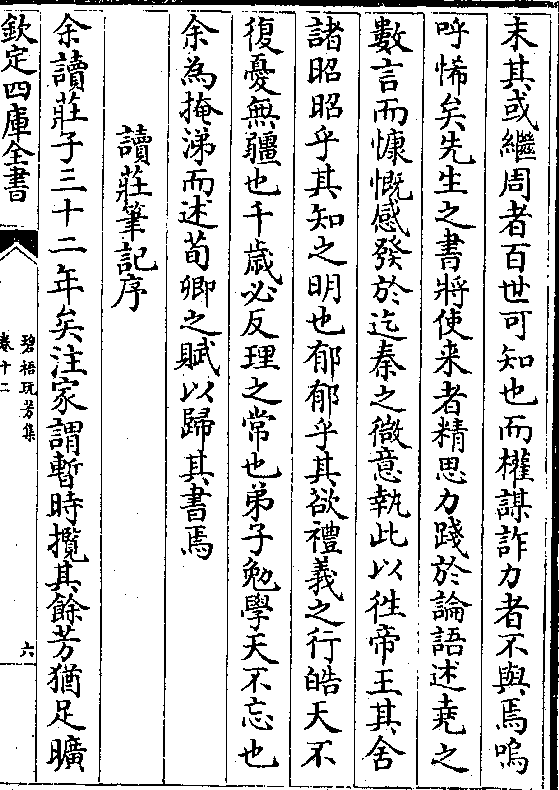 未其或繼周者百世可知也而權謀詐力者不與焉嗚
呼悕矣先生之書將使来者精思力踐於論語述堯之
數言而慷慨感發於迄秦之微意執此以徃帝王其舍
諸昭昭乎其知之明也郁郁乎其欲禮義之行皓天不
復憂無疆也千歳必反理之常也弟子勉學天不忘也
余為掩涕而述荀卿之賦以歸其書焉
讀莊筆記序
余讀莊子三十二年矣注家謂暫時攬其餘芳猶足曠
欽定四庫全書
碧梧玩芳集
卷十二
六